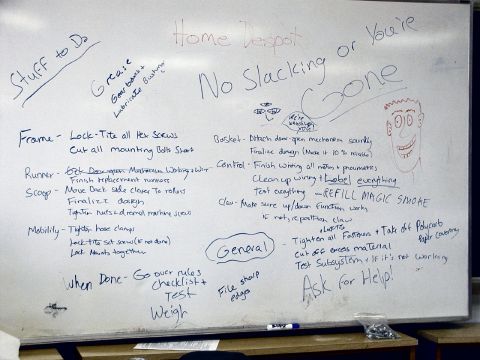 Stuff to Do
Home Despot
Grease
Gear boxes +
Lubricate Bushings
No Slacking or You're
Gone
We're watching you
Frame - Lock-Tite all Hex Screws
Cut all mounting Bolts Short
Runner -
Finish replacement runners
Scoop - Move Back side closer to rollers
Finalize design
Tighten nuts +
Mobility - Tighten hose clamps
Lock-tite set screw (if not done)
Lock mounts together
When Done - Go over rules
checklist +
Test
Weigh
File sharp
edges
Basket - Detach door-open mechanism
Finalize design (Make it 10 % nicer)
Control - Finish wiring all + pneumatics
Clean up wiring + Label everything
Test everything - REFILL MAGIC SMOKE
Claw - Make sure up/down function works
if not, reposition claw
General
- Tighten all + Take off Polycarb
Paper covering
Cut off excess material
Test Subsystem + if it's not working
Ask for Help!